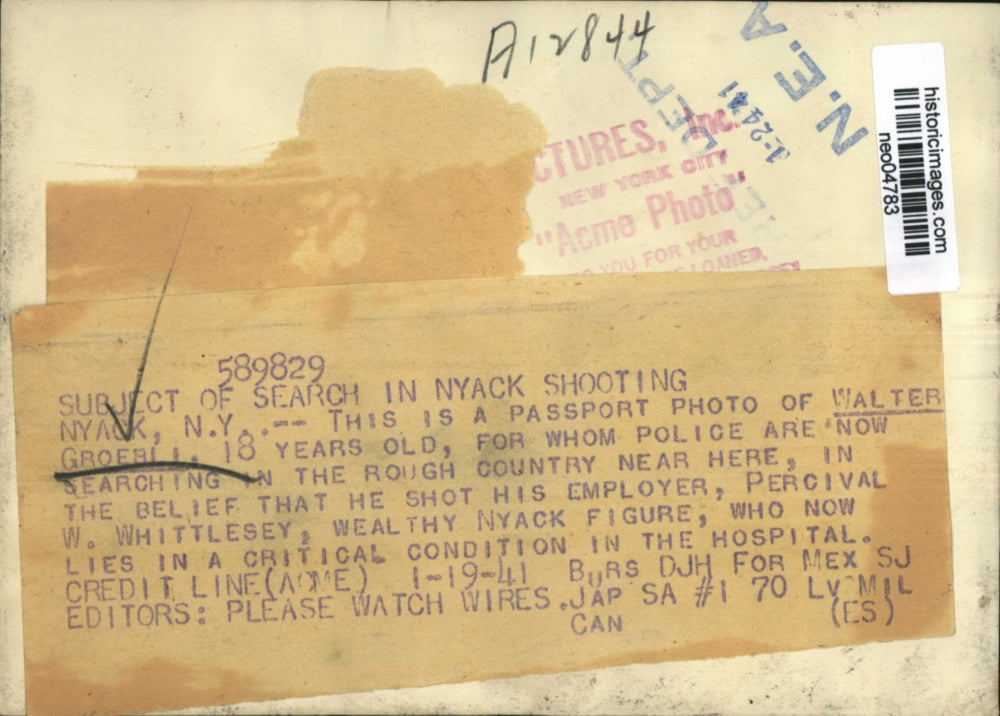 A12844
DEPT.
N.E.A
1-24-41
CTURES, Inc.
NEW YORK CITY
"Acme Photo"
YOU FOR YOUR
LOANED,
historicimages.com
neo04783
589829
SUBJECT OF SEARCH IN NYACK SHOOTING
NYACK, N.Y..-- THIS IS A PASSPORT PHOTO OF WALTER
GROEBLI, 18 YEARS OLD, FOR WHOM POLICE ARE NOW
SEARCHING IN THE ROUGH COUNTRY NEAR HERE, IN
THE BELIEF THAT HE SHOT HIS EMPLOYER, PERCIVAL
W. WHITTLESEY, WEALTHY NYACK FIGURE, WHO NOW
LIES IN A CRITICAL CONDITION IN THE HOSPITAL.
CREDIT LINE(ACME) 1-19-41 BURS DJH FOR MEX SJ
EDITORS: PLEASE WATCH WIRES.JAP SA #1 70 LV MIL
CAN (ES)